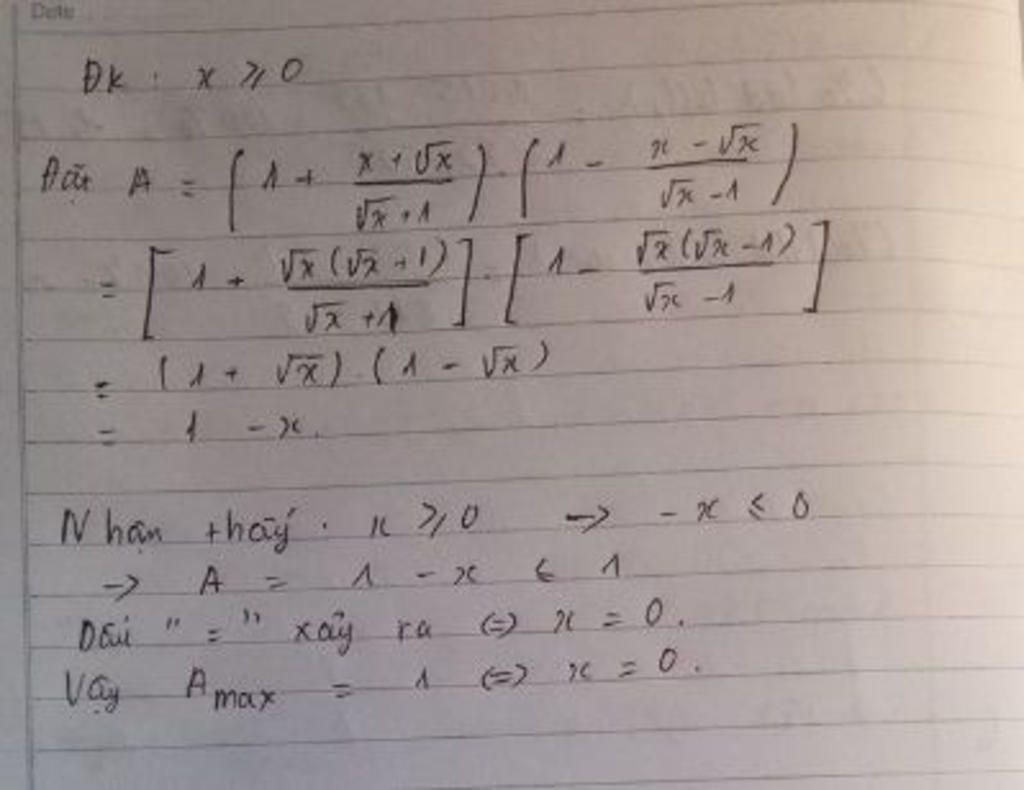 Date
ĐK : x ≥ 0
Đặt A = (1 + (x + √x)/(√x + 1)) . (1 - (x - √x)/(√x - 1))
= [1 + √x(√x + 1)/(√x + 1)] . [1 - √x(√x - 1)/(√x - 1)]
= (1 + √x) . (1 - √x)
= 1 - x.
Nhận thấy : x ≥ 0 -> - x ≤ 0
-> A = 1 - x ≤ 1
Dấu " = " xảy ra <=> x = 0.
Vậy Amax = 1 <=> x = 0.